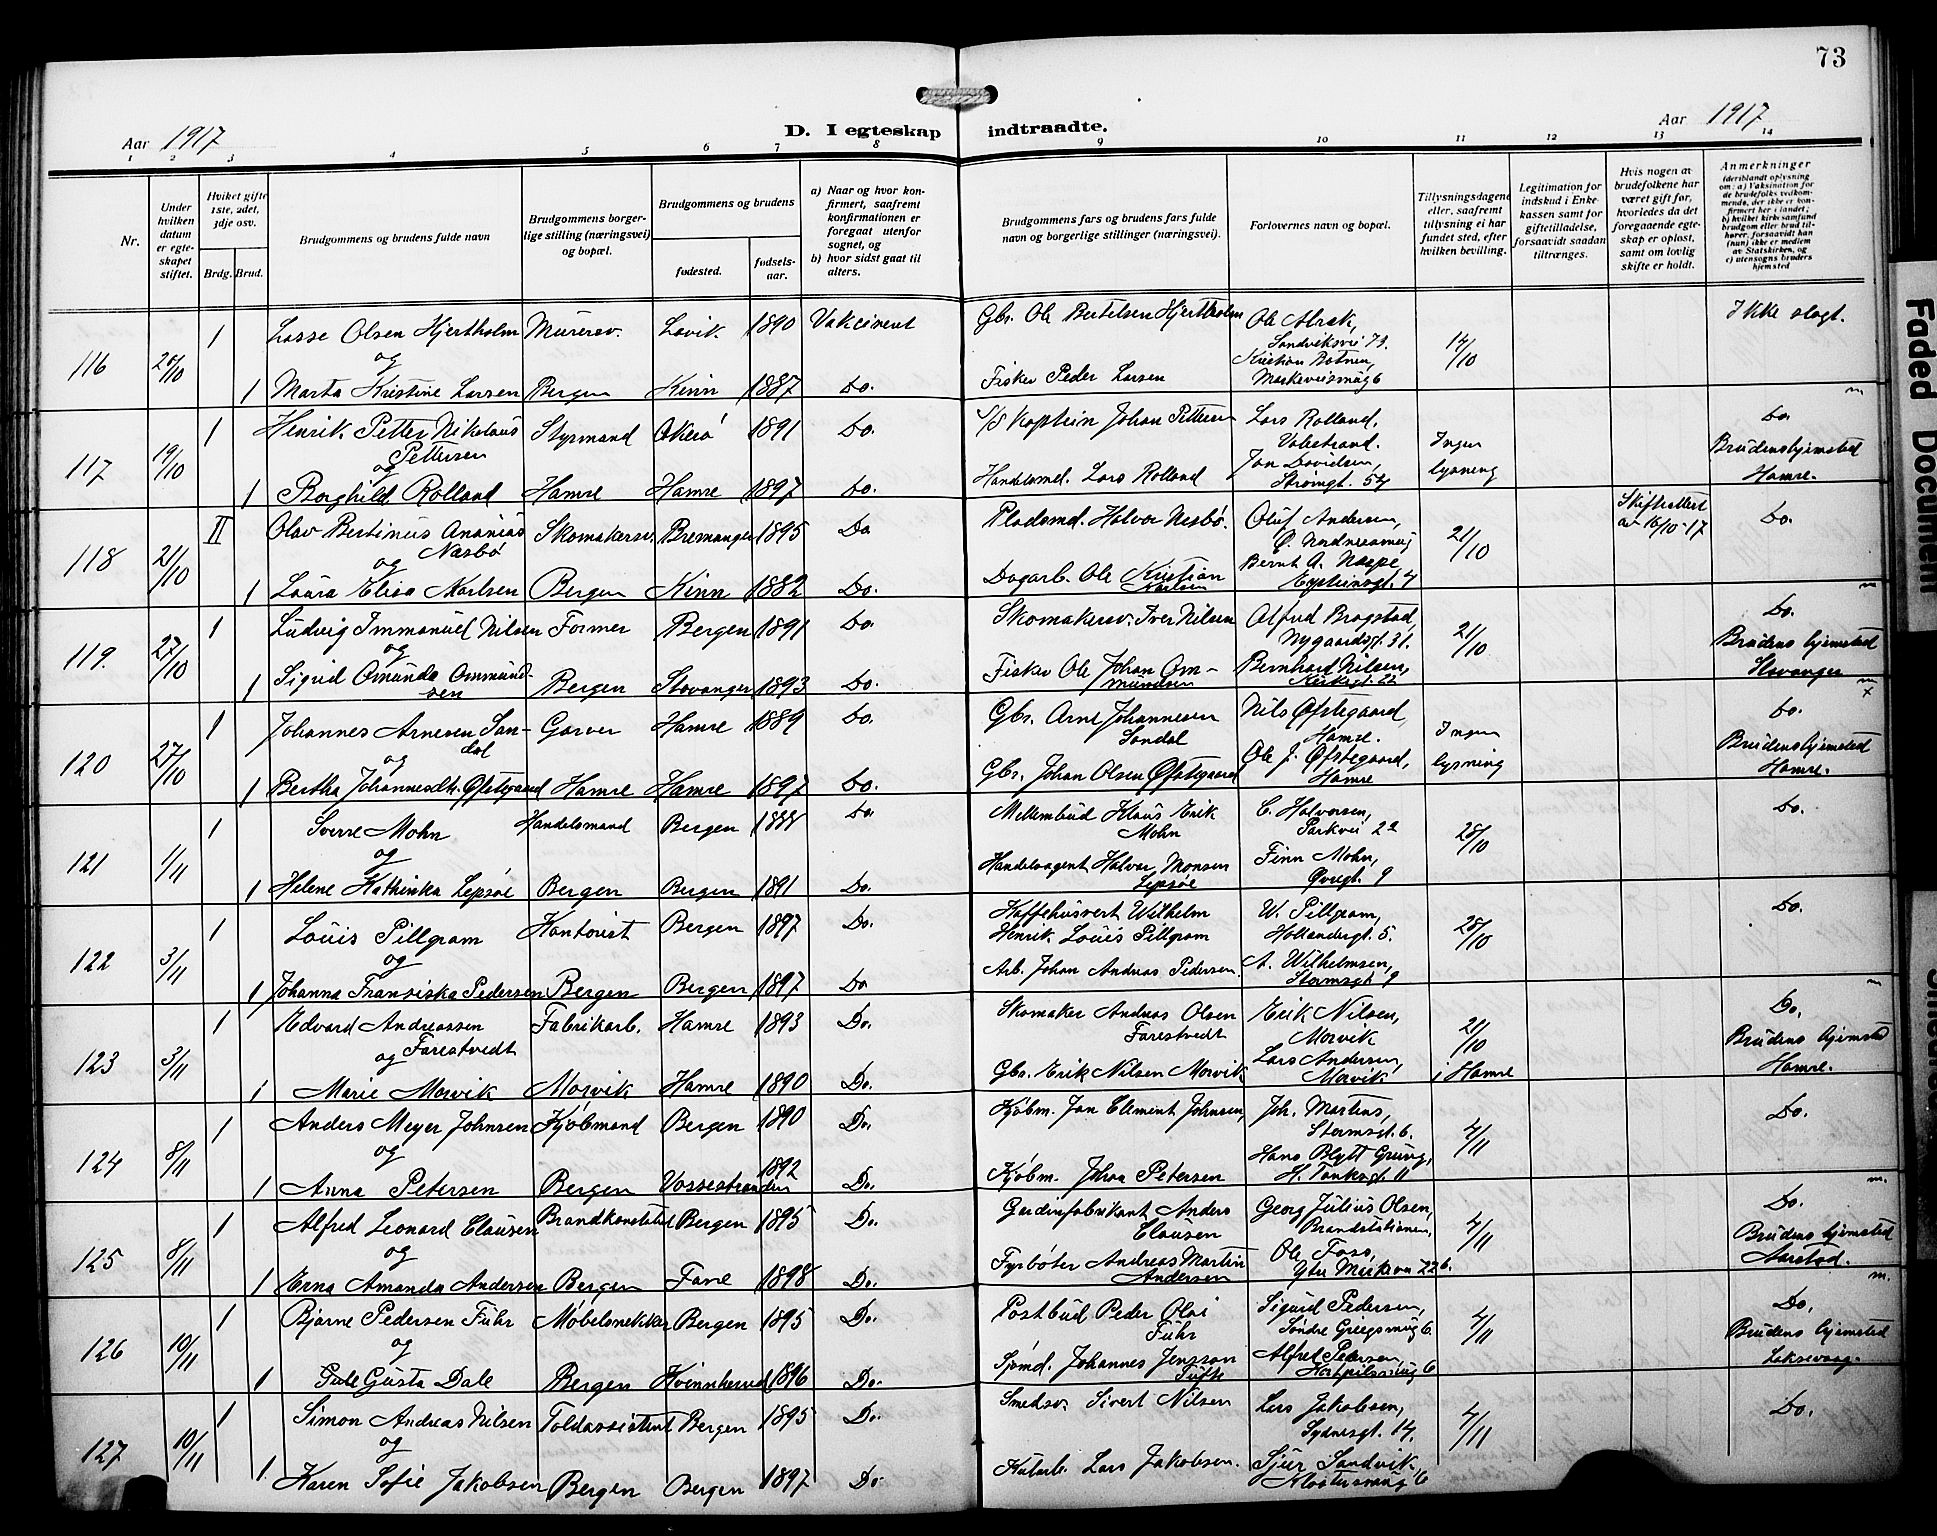 73
Aar 1917
D. I egteskap indtraadte.
Aar 1917
1 2 3 4 5 6 7 8 9 10 11 12 13 14
Nr.
Under hvilken datum er egteskapet stiftet.
Hvilket gifte 1ste, 2det, 3dje osv.
Brdg. Brud.
Brudgommens og brudens fulde navn
Brudgommens borgerlige stilling (næringsvei) og bopæl.
Brudgommens og brudens
fødested.
fødselsaar.
a) Naar og hvor konfirmert, saafremt konfirmationen er foregaat utenfor sognet, og
b) hvor sidst gaat til alters.
Brudgommens fars og brudens fars fulde navn og borgerlige stillinger (næringsvei).
Forlovernes navn og bopæl.
Tillysningsdagene eller, saafremt tillysning ei har fundet sted, efter hvilken bevilling.
Legitimation for indskud i Enkekassen samt for giftetilladelse, forsaavidt saadan tiltrænges.
Hvis nogen av brudefolkene har været gift før, hvorledes da det foregaaende egteskap er opløst, samt om lovlig skifte er holdt.
Anmerkninger (deriblandt oplysning om: a) Vaksination for de brudefolks vedkommende, der ikke er konfirmert her i landet; b) hvilket kirkesamfund brudgom eller brud tilhører, forsaavidt han (hun) ikke er medlem av Statskirken, og c) utensogns bruders hjemsted
116 20/10 1 Lasse Olsen Hjertholm Murersv. Lavik 1890 Vakcineret Gbr. Ole Bertelsen Hjertholm Ole Alræk, Sandviksvei 79. 14/10 Ikke slegt.
og
1 Marta Kristine Larsen Bergen Kinn 1887 Do. Fisker Peder Larsen Kristian Botnen, Markeveismug 6
117 19/10 1 Henrik Petter Nikolaus Pettersen Styrmand Okerø 1891 Do. S/S Kaptein Johan Pettersen Lars Rolland, Valestrand. Ingen lysning Do. Brudens hjemsted Hamre.
og
1 Borghild Rolland Hamre Hamre 1897 Do. Handelsmd. Lars Rolland Jan Davidsen, Strømgt. 54
118 21/10 II Olav Bertinius Ananias Nesbø Skomakersv. Bremanger 1895 Do Pladsmd. Halvor Nesbø. Oluf Andersen, Ø. Nordnæsmug 21/10 Skifteattest av 16/10-17 Do.
og
1 Laura Elisa Karlsen Bergen Kinn 1882 Do. Dagarb. Ole Kristian Karlsen Bernt A. Neppe, Eysteinsgt. 4
119. 27/10 1 Ludvig Immanuel Nilsen Former Bergen 1891 Do. Skomakersv. Iver Nilsen Alfred Bragstad, Nygaardsgt. 31. 21/10 Do. Brudens hjemsted Stavanger
og
1 Sigrid Amunda Ommundsen Bergen Stavanger 1893 Do. Fisker Ole Johan Ommundsen Bernhard Nilsen, Kirkegt. 22
120 27/10 1 Johannes Arnesen Sandal Garver Hamre 1889 Do. Gbr. Arne Johannesen Sandal Nils Øfstegaard, Hamre. Ingen lysning Do. Brudens hjemsted Hamre.
og
1 Bertha Johannesdtr. Øfstegaard Hamre Hamre 1897 Do. Gbr. Johan Olsen Øfstegaard Ole J. Øfstegaard, Hamre
121 1/11 1 Sverre Mohn Handelsmand Bergen 1888 Do Mellembud Klaus Erik Mohn C. Halvorsen, Parkvei 22 28/10 Do.
og
1 Helene Kathinka Lepsøe Bergen Bergen 1891 Do. Handelsagent Halvor Monsen Lepsøe Finn Mohn, Øvregt. 9
122 3/11 1 Louis Pillgram Kontorist Bergen 1897 Do. Kaffehusvert Wilhelm Henrik Louis Pillgram W. Pillgram, Hollandergt. 5. 28/10 Do.
og
1 Johanna Fransiska Pedersen Bergen Bergen 1897 Do Arb. Johan Andreas Pedersen. A. Wilhelmsen, Stormsgt. 9
123 3/11 1 Edvard Andreassen Farestvedt Fabrikarb. Hamre 1893 Do. Skomaker Andreas Olsen Farestvedt Erik Nilsen, Morvik 21/10 i Hamre Do. Brudens hjemsted Hamre.
og
1 Marie Morvik Morvik Hamre 1890 Do. Gbr. Erik Nilsen Morvik Lars Andersen, Morvik
124 8/11 1 Anders Meyer Johnsen Kjøbmand Bergen 1890 Do. Kjøbm. Jan Clement Johnsen, Joh. Martens, Stormsgt. 6. 4/11 Do.
og
1 Anna Petersen Bergen Vossestranden 1892 Do. Kjøbm. Johan Petersen Hans Blytt Grung, H. Tanksgt. 11
125 8/11 1 Alfred Leonard Clausen Brandkonstabel Bergen 1895 Do. Gardinfabrikant Anders Clausen Georg Julius Olsen, Brandstationen, 4/11 Do. Brudens hjemsted Aarstad.
og
1 Erna Amanda Andersen Bergen Fane 1898 Do. Fyrbøter Andreas Martin Andersen Ole Foss, Ytre Markevei 22 b.
126 10/11 1 Bjarne Pedersen Fuhr Møbelsnekker Bergen 1895 Do. Postbud Peder Olai Fuhr Sigurd Pedersen, Søndre Griegsmug 6. 4/11 Do. Brudens hjemsted Laksevaag.
og
1 Gusta Dale Bergen Kvinnherred 1896 Do. Sjømd. Johannes Jensson Tufte Alfred Pedersen, 6
127 10/11 1 Simon Andreas Nilsen Toldassistent Bergen 1895 Do. Smedsv. Sivert Nilsen Lars Jakobsen, Sydnesgt. 14. 4/11 Do.
og
1. Karen Sofie Jakobsen Bergen Bergen 1897 Do. Lars Jakobsen. Sjur Sandvik, Klostersmug 16
Faded Document